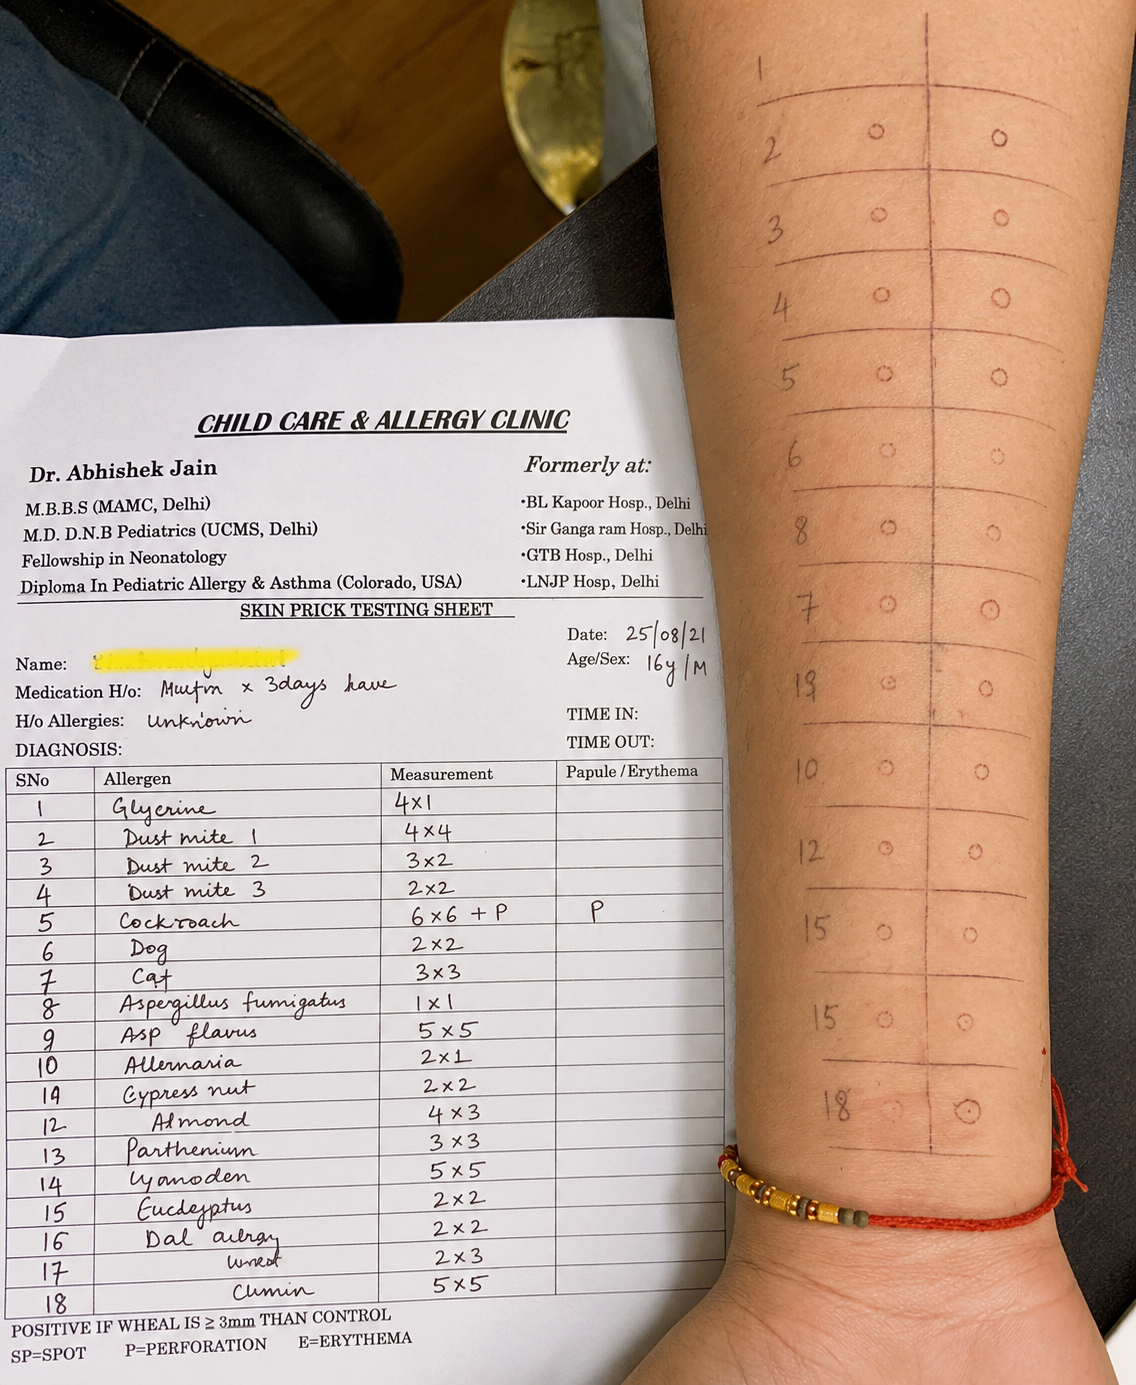 CHILD CARE & ALLERGY CLINIC
Dr. Abhishek Jain
M.B.B.S (MAMC, Delhi)
M.D. D.N.B Pediatrics (UCMS, Delhi)
Fellowship in Neonatology
Diploma In Pediatric Allergy & Asthma (Colorado, USA)
Formerly at:
•BL Kapoor Hosp., Delhi
•Sir Ganga ram Hosp., Delhi
•GTB Hosp., Delhi
•LNJP Hosp, Delhi
SKIN PRICK TESTING SHEET
Date: 25/08/21
Name:
Age/Sex: 16y/M
Medication H/o: x 3days have
H/o Allergies: unknown
TIME IN:
DIAGNOSIS:
TIME OUT:
SNo Allergen Measurement Papule / Erythema
1 Glycerine 4x1
2 Dust mite 1 4x4
3 Dust mite 2 3x2
4 Dust mite 3 2x2
5 Cockroach 6x6 + P P
6 Dog 2x2
7 Cat 3x3
8 Aspergillus fumigatus 1x1
9 Asp flavus 5x5
10 Allernaria 2x1
19 Cypress nut 2x2
12 Almond 4x3
13 Parthenium 3x3
14 5x5
15 2x2
16 Dal 2x2
17 2x3
18 Cumin 5x5
POSITIVE IF WHEAL IS ≥ 3mm THAN CONTROL
SP=SPOT P=PERFORATION E=ERYTHEMA
1
2
3
4
5
6
8
7
19
10
12
15
15
18